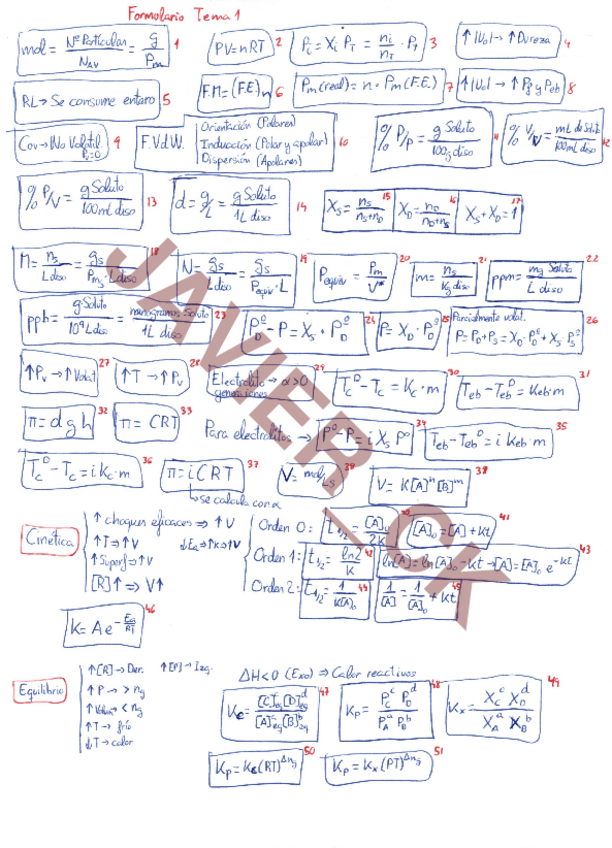 Formulario Tema 1
mol = Nº Partículas / N_AV = g / Pm 1
PV = nRT 2
P_i = X_i P_T = n_i / n_T · P_T 3
↑|Vo| → ↑ Dureza 4
RL → Se consume entero 5
F.M. = (F.E.)n 6
Pm (real) = n · Pm (F.E.) 7
↑|Vo| → ↑ Pf y Peb 8
Cov → No Volátil P_v^0 = 0 9
F.V.d.W. Orientación (Polares) 10
Inducción (Polar y apolar)
Dispersión (Apolares)
% P/P = g Soluto / 100g diso 11
% V/V = mL de Soluto / 100mL diso 12
% P/V = g Soluto / 100mL diso 13
d = g/L = g Soluto / 1L diso 14
X_s = n_s / n_s+n_D 15
X_D = n_D / n_D+n_s 16
X_s + X_D = 1 17
M = n_s / L diso = g_s / Pm_s · L diso 18
N = g_s / L diso = g_s / Pequiv · L 19
Pequiv = Pm / V* 20
m = n_s / Kg diso 21
ppm = mg Soluto / L diso 22
ppb = g Soluto / 10^9 L diso = nanogramos Soluto / 1L diso 23
P_D^0 - P = X_s · P_D^0 24
P = X_D · P_D^0 25
Parcialmente volat. 26
P = P_D + P_s = X_D · P_D^0 + X_s · P_s^0
↑Pv → ↑ Volat 27
↑T → ↑ Pv 28
Electrolito → α > 0 29
T_c^D - T_c = K_c · m 30
T_eb - T_eb^D = K_eb · m 31
π = d g h 32
π = CRT 33
Para electrolitos →
P^0 - P = i X_s P^0 34
T_eb - T_eb^D = i K_eb · m 35
T_c^D - T_c = i K_c · m 36
π = i CRT 37
→ se calcula con α
V = mol / L s 38
V = K[A]^n [B]^m 39
Cinética
↑ choques eficaces ⇒ ↑V
↑T ⇒ ↑V
↓Ea ⇒ ↑K ⇒ ↑V
↑Superf ⇒ ↑V
[R]↑ ⇒ V↑
Orden 0: t_1/2 = [A]_0 / 2K 40
[A]_0 = [A] + Kt 41
Orden 1: t_1/2 = ln2 / K 42
ln[A] = ln[A]_0 - Kt → [A] = [A]_0 e^-Kt 43
Orden 2: t_1/2 = 1 / K[A]_0 44
1/[A] = 1/[A]_0 + Kt 45
K = A e^-Ea/RT 46
Equilibrio
↑[R] → Der. ↑[P] → Izq.
↑P → > n_g
↑Volum → < n_g
↑T → frío
↓T → calor
ΔH<0 (Exo) ⇒ Calor reactivos
K_c = [C]^c_eq [D]^d_eq / [A]^a_eq [B]^b_eq 47
K_p = P_C^c P_D^d / P_A^a P_B^b 48
K_x = X_C^c X_D^d / X_A^a X_B^b 49
K_p = K_c (RT)^Δn_g 50
K_p = K_x (PT)^Δn_g 51
JAVIER_CK